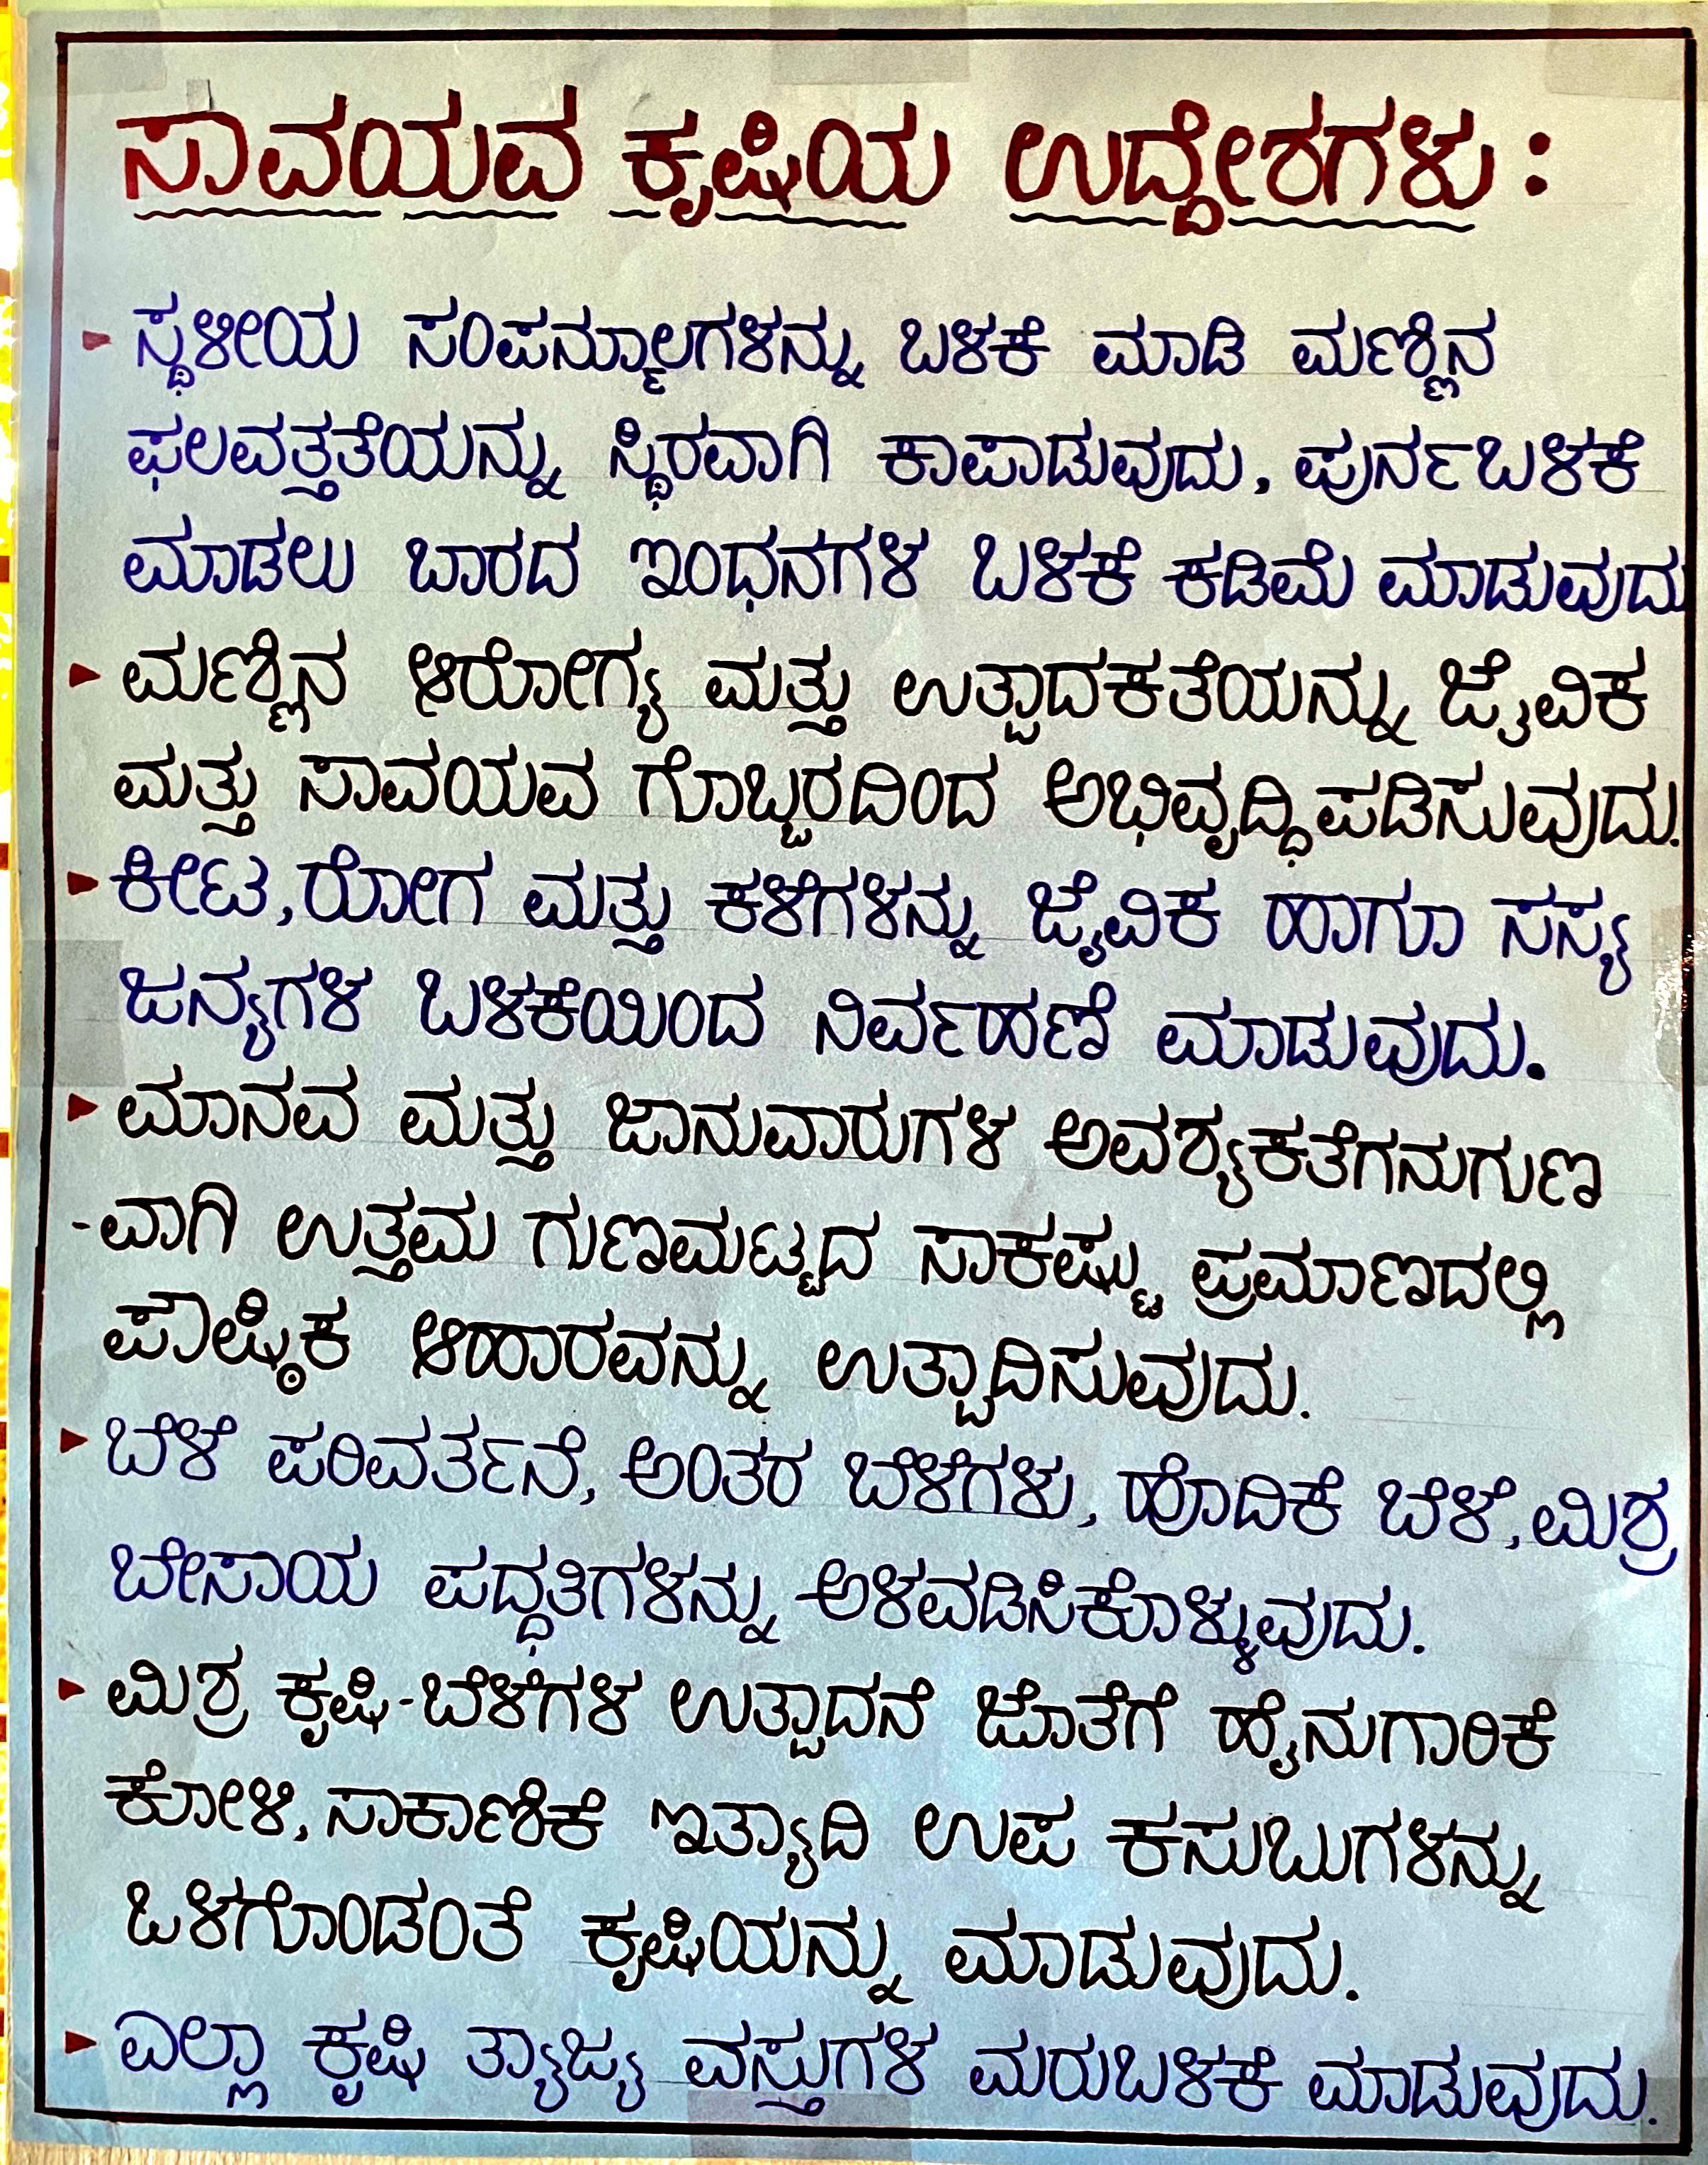 ಸಾವಯವ ಕೃಷಿಯ ಉದ್ದೇಶಗಳು :
ಸ್ಥಳೀಯ ಸಂಪನ್ಮೂಲಗಳನ್ನು ಬಳಕೆ ಮಾಡಿ ಮಣ್ಣಿನ
ಫಲವತ್ತತೆಯನ್ನು ಸ್ಥಿರವಾಗಿ ಕಾಪಾಡುವುದು, ಪುರ್ನಬಳಕೆ
ಮಾಡಲು ಬಾರದ ಇಂಧನಗಳ ಬಳಕೆ ಕಡಿಮೆ ಮಾಡುವುದು
ಮಣ್ಣಿನ ಆರೋಗ್ಯ ಮತ್ತು ಉತ್ಪಾದಕತೆಯನ್ನು ಜೈವಿಕ
ಮತ್ತು ಸಾವಯವ ಗೊಬ್ಬರದಿಂದ ಅಭಿವೃದ್ಧಿಪಡಿಸುವುದು.
ಕೀಟ, ರೋಗ ಮತ್ತು ಕಳೆಗಳನ್ನು ಜೈವಿಕ ಹಾಗೂ ಸಸ್ಯ
ಜನ್ಯಗಳ ಬಳಕೆಯಿಂದ ನಿರ್ವಹಣೆ ಮಾಡುವುದು.
ಮಾನವ ಮತ್ತು ಜಾನುವಾರುಗಳ ಅವಶ್ಯಕತೆಗನುಗುಣ
-ವಾಗಿ ಉತ್ತಮ ಗುಣಮಟ್ಟದ ಸಾಕಷ್ಟು ಪ್ರಮಾಣದಲ್ಲಿ
ಪೌಷ್ಠಿಕ ಆಹಾರವನ್ನು ಉತ್ಪಾದಿಸುವುದು.
ಬೆಳೆ ಪರಿವರ್ತನೆ, ಅಂತರ ಬೆಳೆಗಳು, ಹೊದಿಕೆ ಬೆಳೆ, ಮಿಶ್ರ
ಬೇಸಾಯ ಪದ್ಧತಿಗಳನ್ನು ಅಳವಡಿಸಿಕೊಳ್ಳುವುದು.
ಮಿಶ್ರ ಕೃಷಿ - ಬೆಳೆಗಳ ಉತ್ಪಾದನೆ ಜೊತೆಗೆ ಹೈನುಗಾರಿಕೆ
ಕೋಳಿ, ಸಾಕಾಣಿಕೆ ಇತ್ಯಾದಿ ಉಪ ಕಸುಬುಗಳನ್ನು
ಒಳಗೊಂಡಂತೆ ಕೃಷಿಯನ್ನು ಮಾಡುವುದು.
ಎಲ್ಲಾ ಕೃಷಿ ತ್ಯಾಜ್ಯ ವಸ್ತುಗಳ ಮರುಬಳಕೆ ಮಾಡುವುದು.